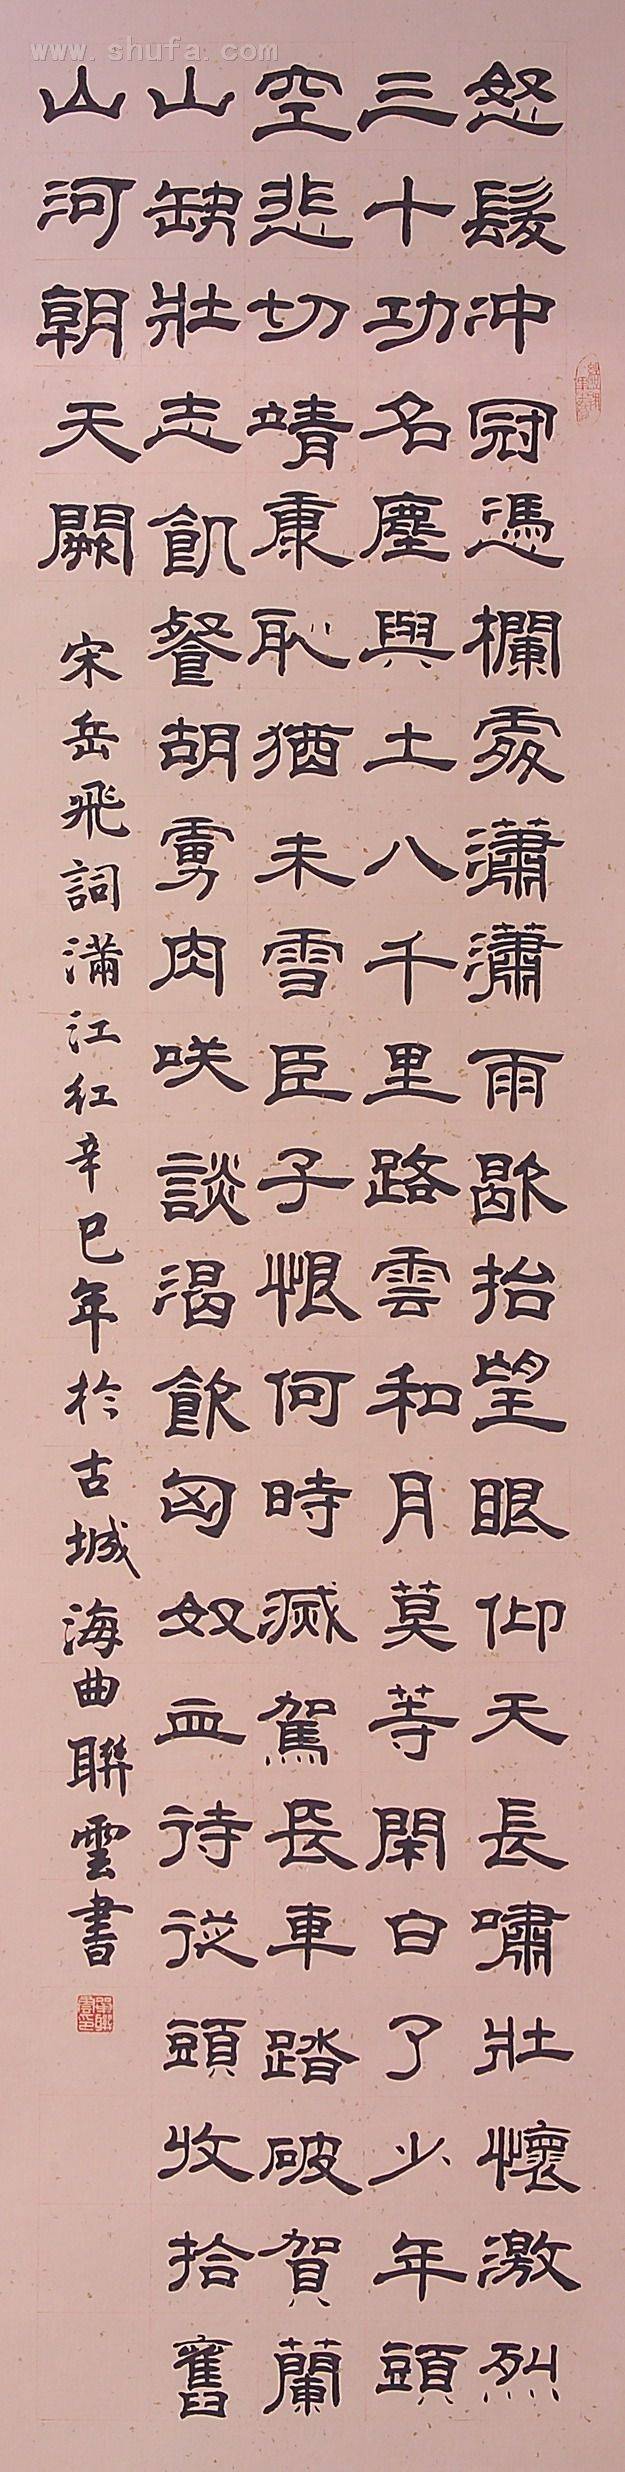 www.shufa.com
怒髮冲冠憑欄處瀟瀟雨歇抬望眼仰天長嘯壯懷激烈
三十功名塵與土八千里路雲和月莫等閑白了少年頭
空悲切靖康恥猶未雪臣子恨何時滅駕長車踏破賀蘭
山缺壯志飢餐胡虜肉咲談渴飲匈奴血待從頭收拾舊
山河朝天闕 宋岳飛詞滿江紅辛巳年於古城海曲聯雲書